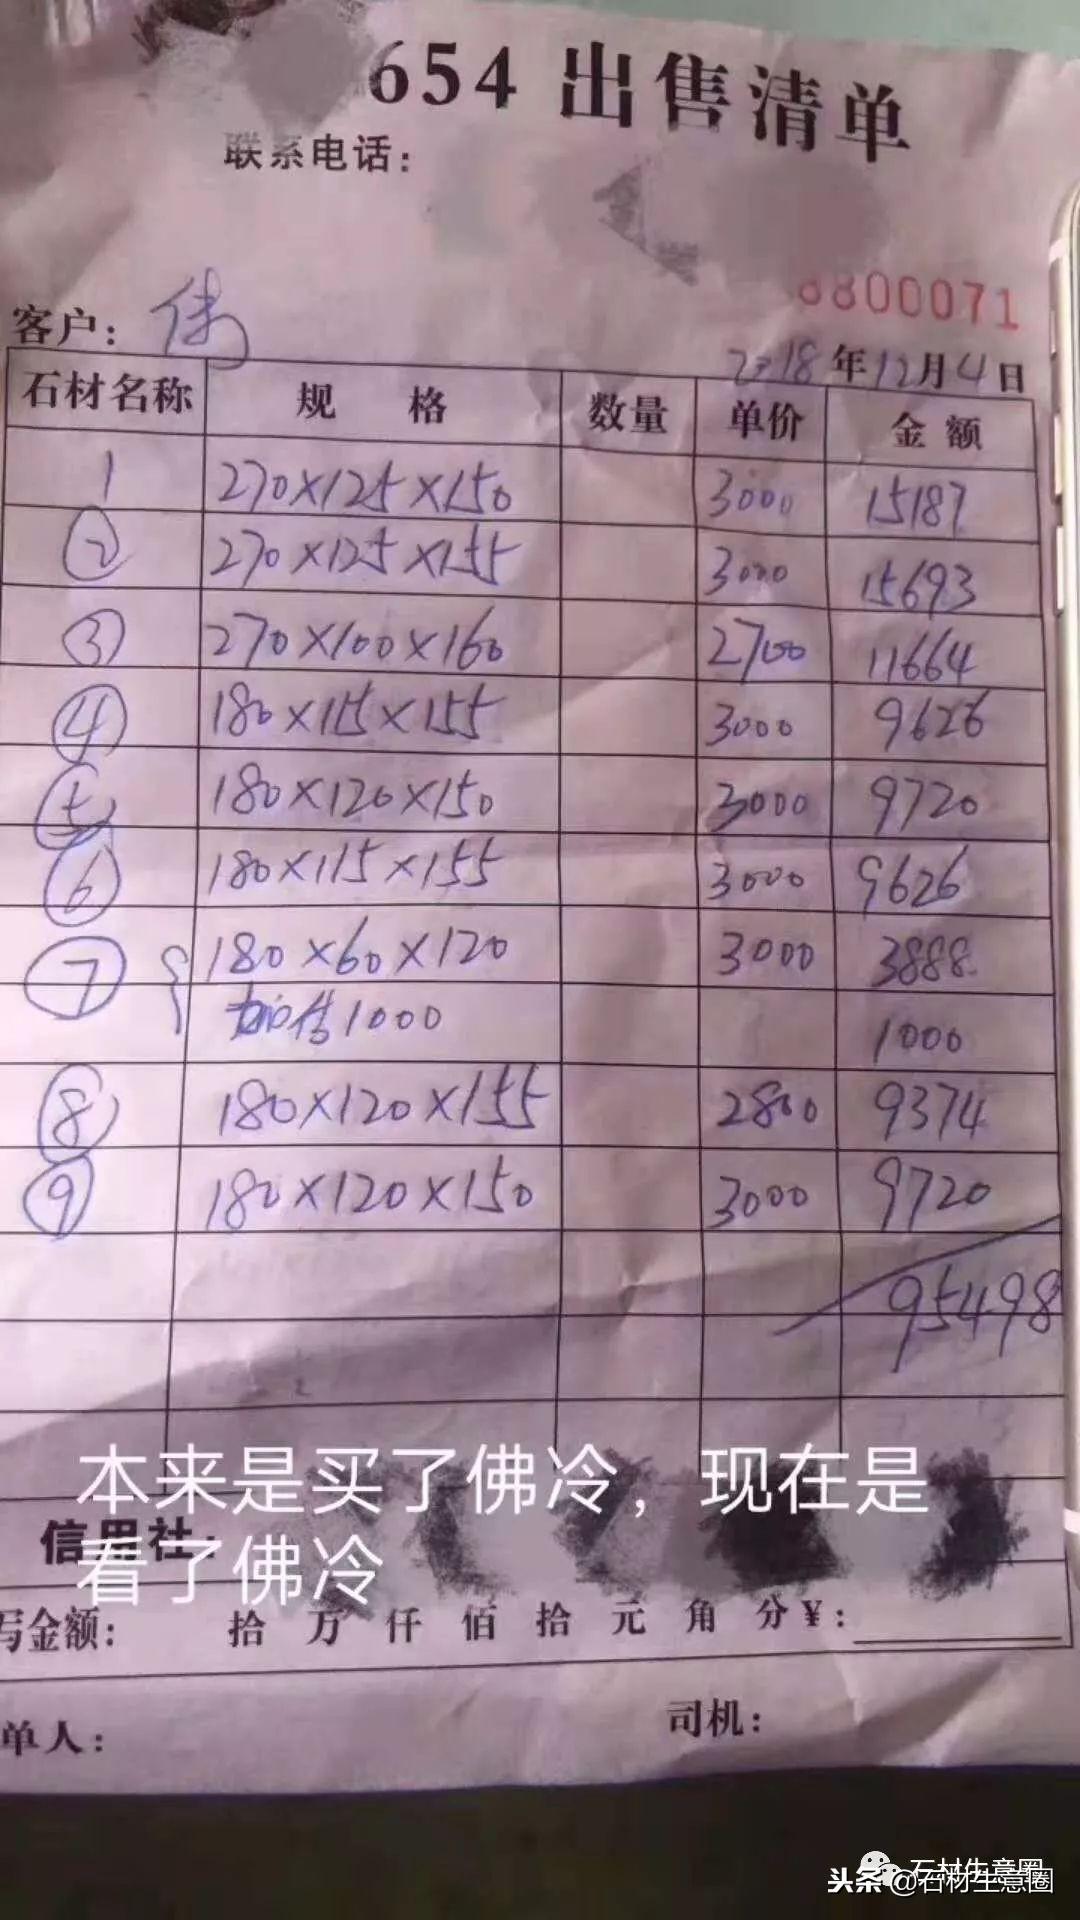 654 出售清单
联系电话：
8800071
客户：
2018年12月4日
石材名称 规 格 数量 单价 金 额
1 270×125×150 3000 15187
② 270×125×155 3000 15693
③ 270×100×160 2700 11664
④ 180×115×155 3000 9626
⑤ 180×120×150 3000 9720
⑥ 180×115×155 3000 9626
⑦ 180×60×120 3000 3888
1000 1000
⑧ 180×120×155 2800 9374
⑨ 180×120×150 3000 9720
95498
本来是买了佛冷，现在是
信用社：
看了佛冷
写金额： 拾 万 仟 佰 拾 元 角 分 ¥：
单人： 司机：
石材生意圈
头条 @石材生意圈